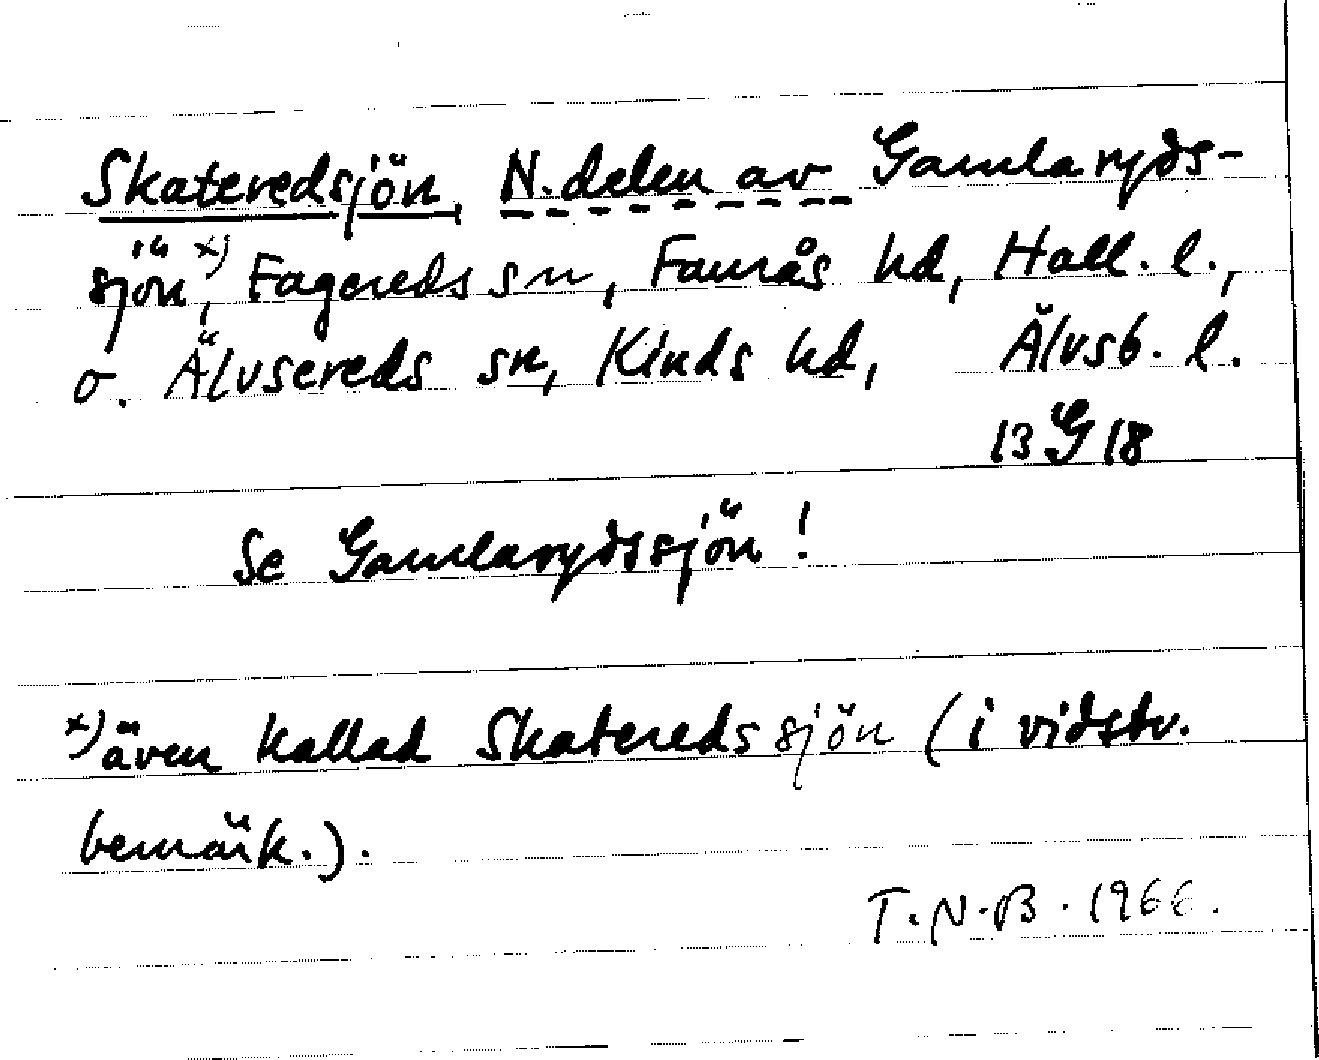 Skateredsjön, N. delen av Gamlaryds-
sjön,ˣ⁾ Fagereds sn, Faurås hd, Hall. l.,
o. Älvsereds sn, Kinds hd, Älvsb. l.
13 G 18
Se Gamlarydssjön!
ˣ⁾ även kallad Skateredssjön (i vidstv.
bemärk.).
T.N.B. 1966.